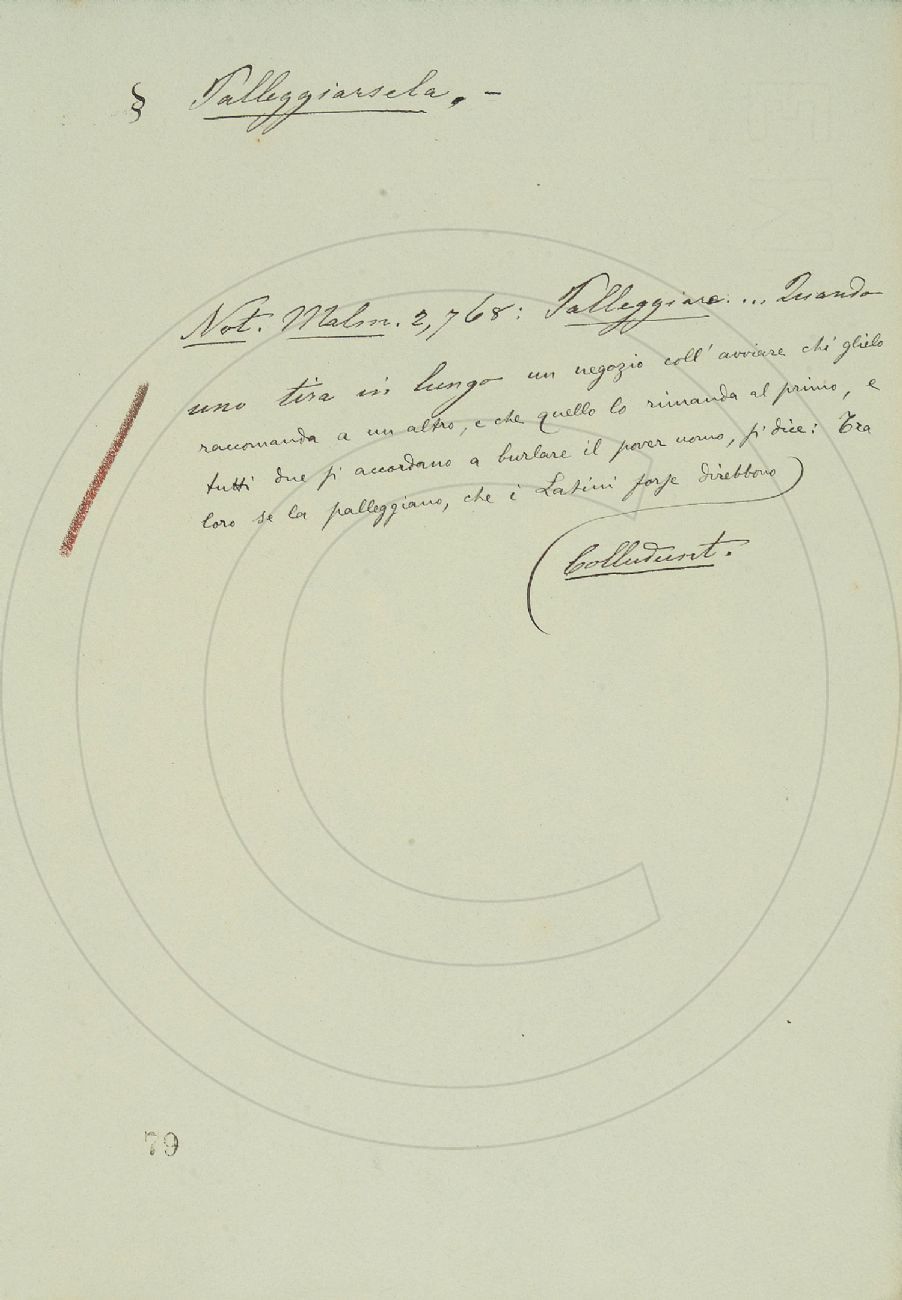 § Palleggiarsela. –
Not. Malm. 2,768: Palleggiare. ... Quando
uno tira in lungo un negozio coll' avviare chi glielo
raccomanda a un altro, e che quello lo rimanda al primo, e
tutti due si accordano a burlare il pover uomo, si dice: Tra
loro se la palleggiano, che i Latini forse direbbono
Colludunt.
79